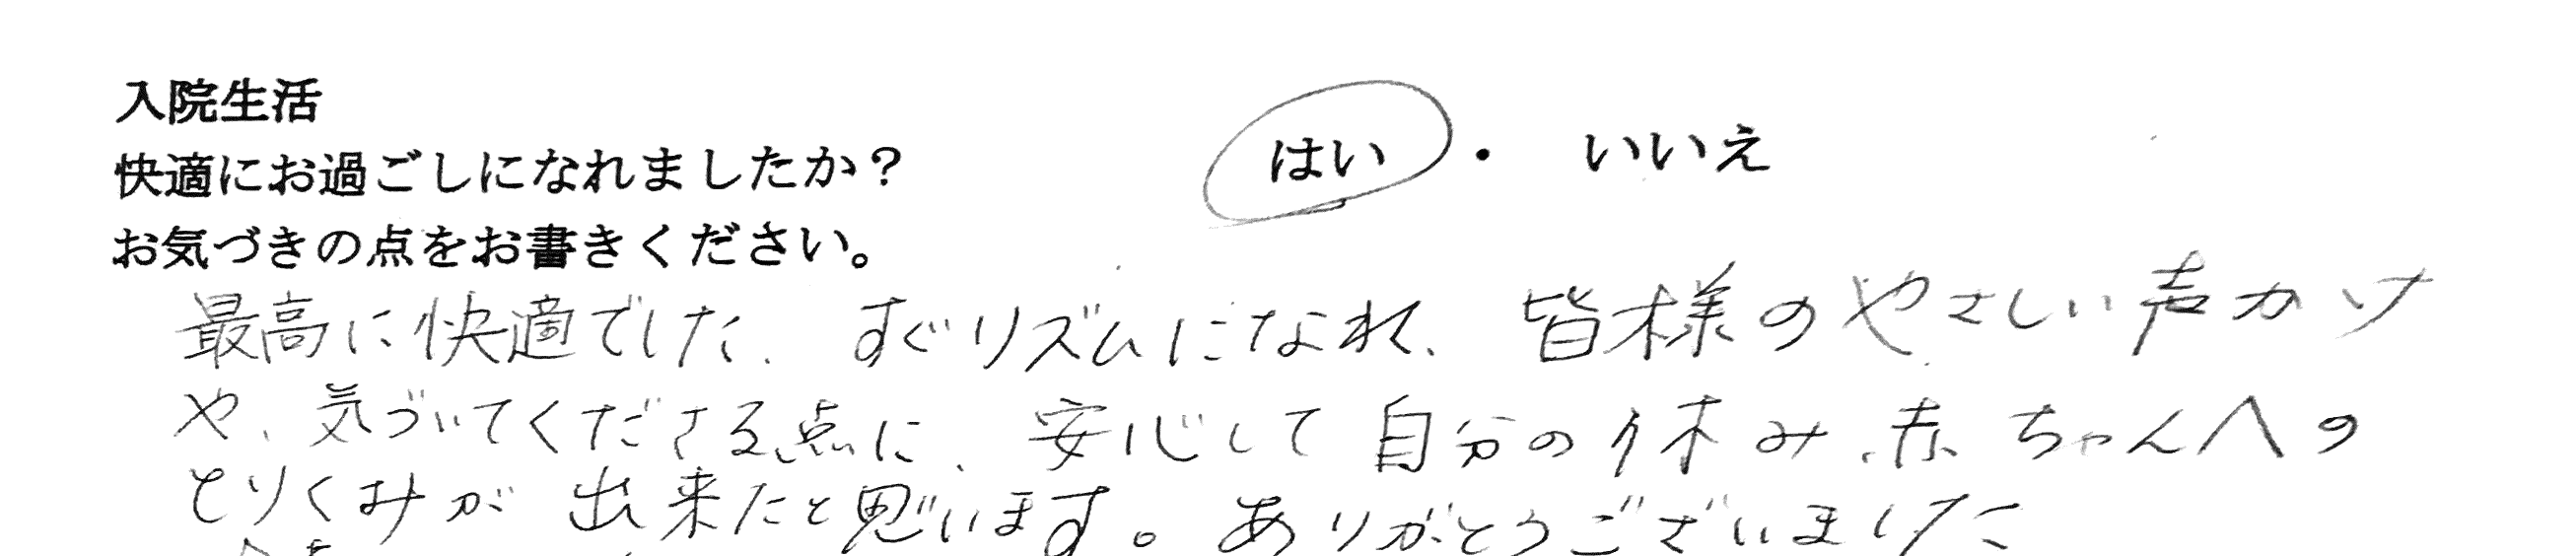 入院生活
快適にお過ごしになれましたか？ はい ・ いいえ
お気づきの点をお書きください。
最高に快適でした、すぐリズムになれ、皆様のやさしい声かけ
や、気づいてくださる点に、安心して自分の休み、赤ちゃんへの
とりくみが出来たと思います。ありがとうございました